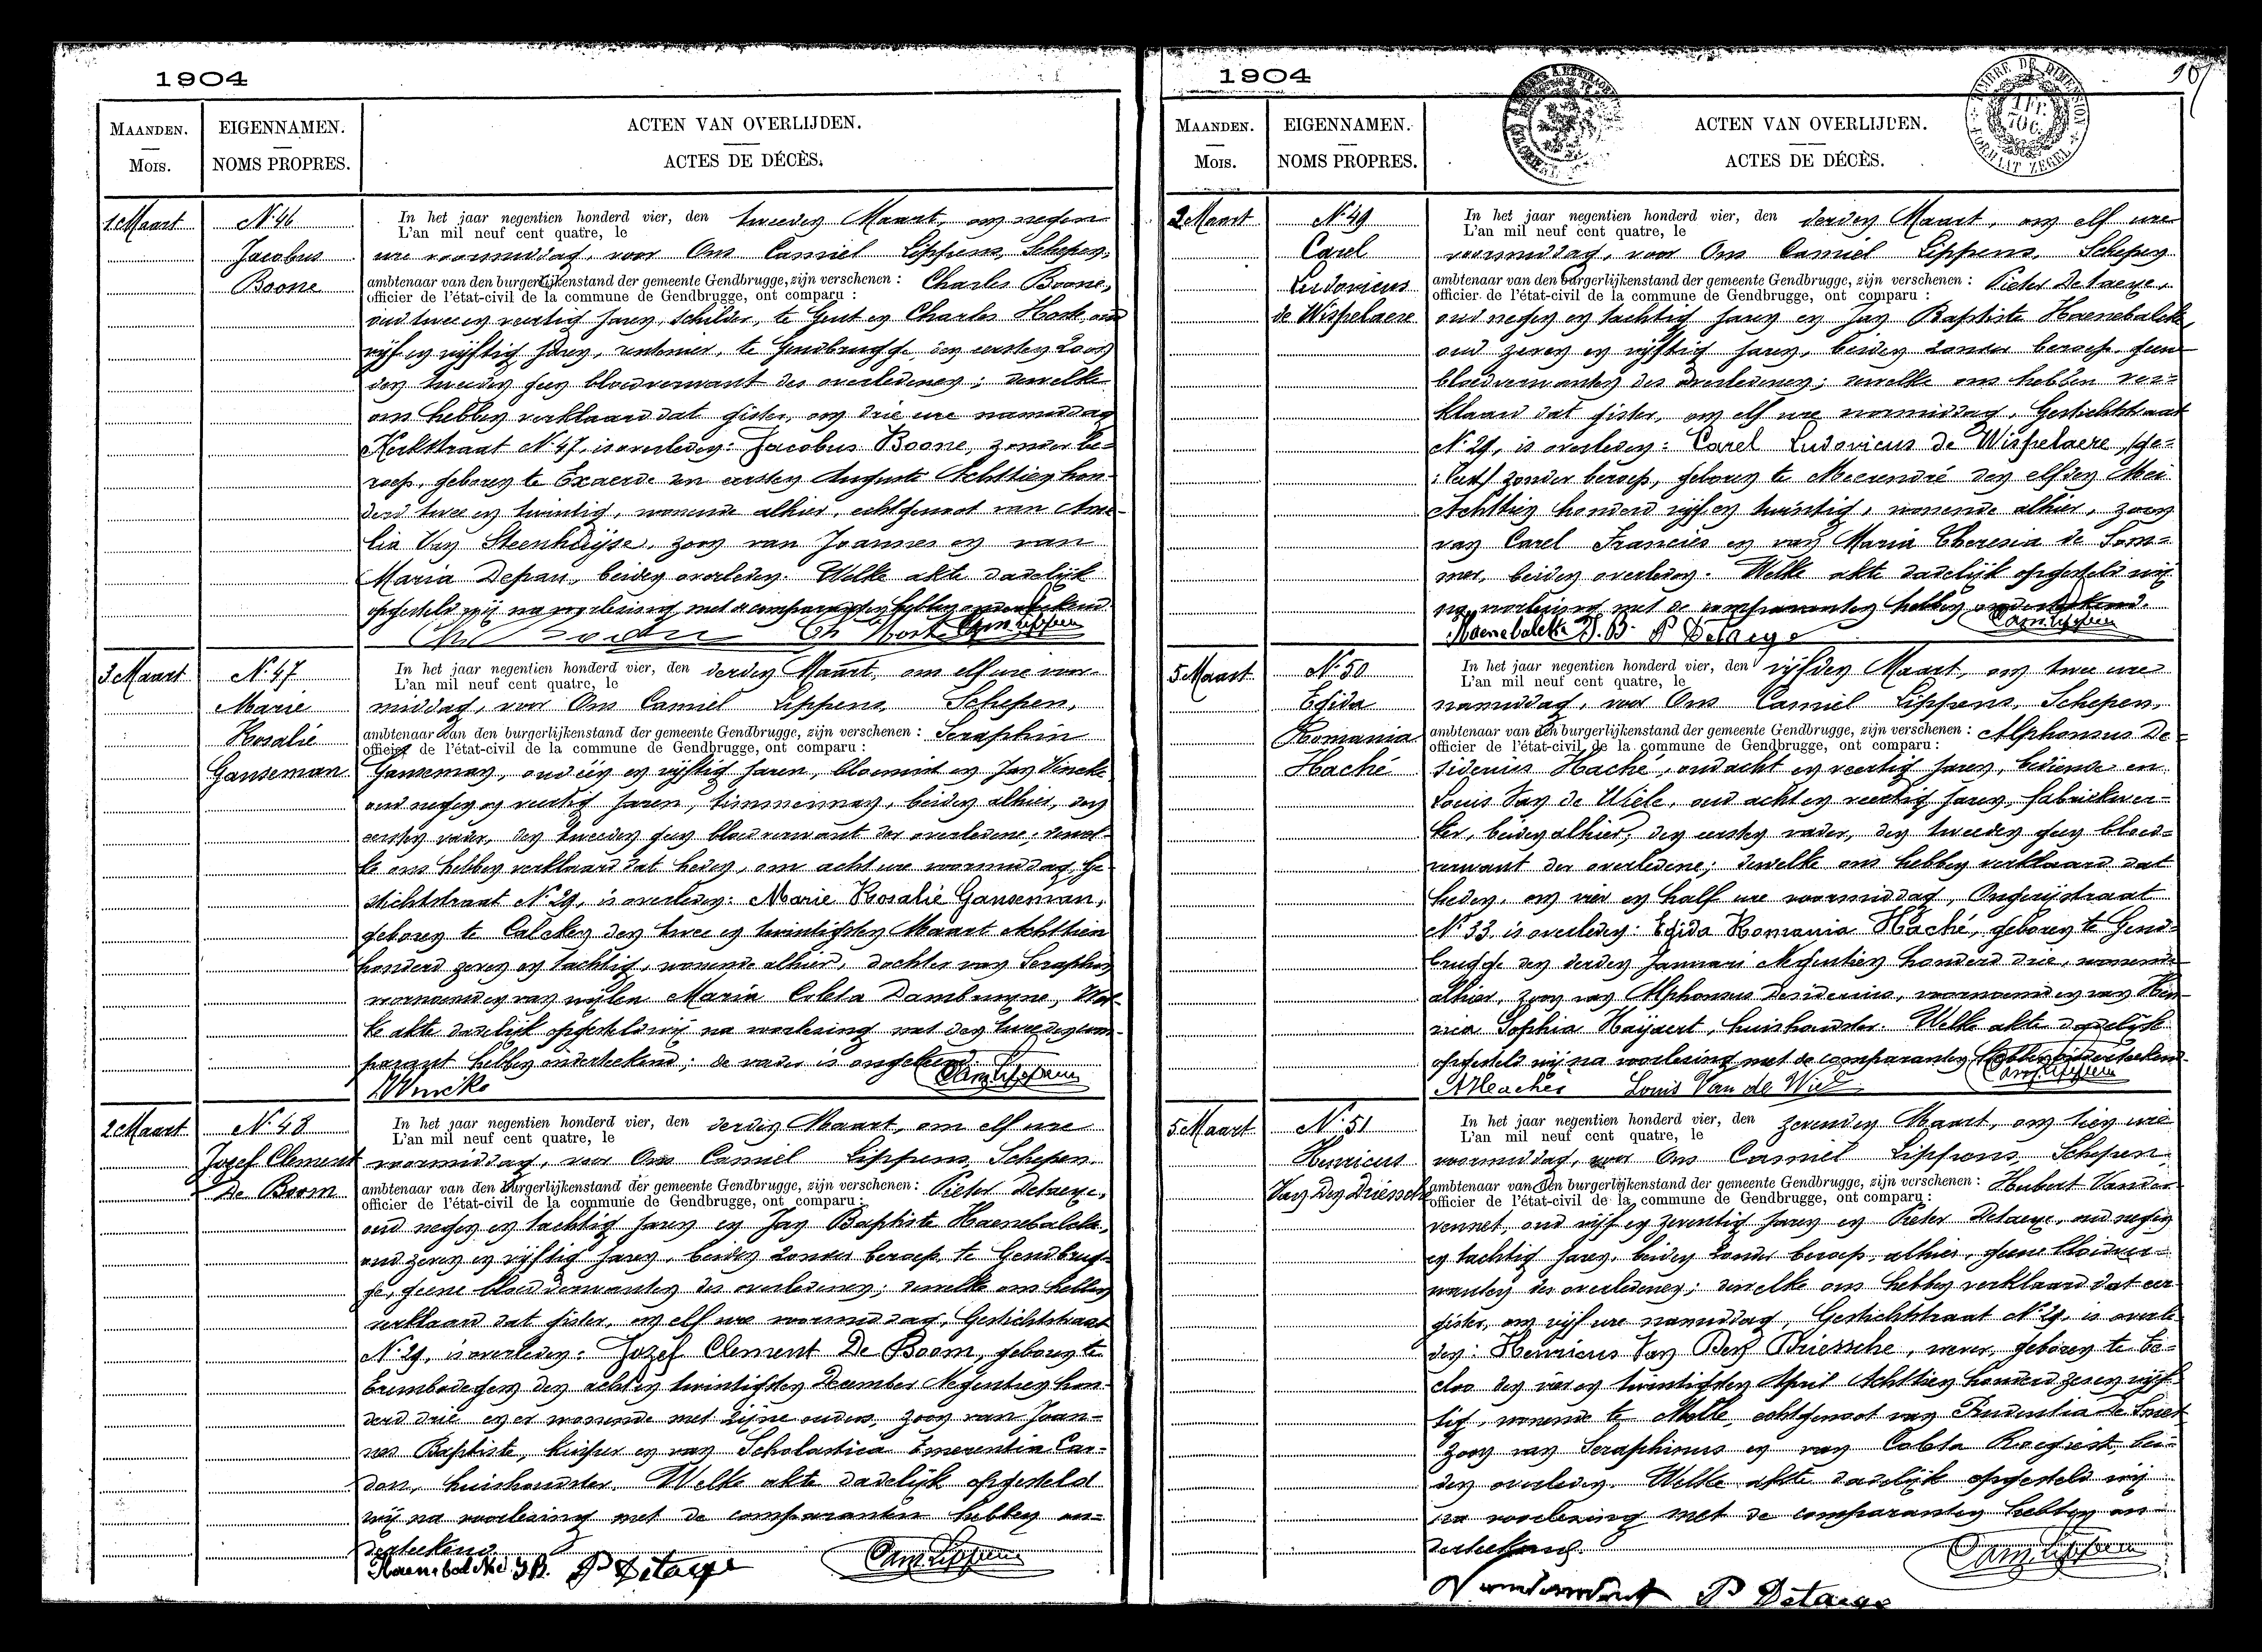 1904
MAANDEN.
Mois.
EIGENNAMEN.
NOMS PROPRES.
ACTEN VAN OVERLIJDEN.
ACTES DE DÉCÈS.
1 Maart
N. 46
Jacobus
Boone
In het jaar negentien honderd vier, den tweeden Maart, om negen
L'an mil neuf cent quatre, le
ure voormiddag, voor Ons Camiel Lippens, Schepen,
ambtenaar van den burgerlijkenstand der gemeente Gendbrugge, zijn verschenen : Charles Boone,
officier de l'état-civil de la commune de Gendbrugge, ont comparu :
oud twee en veertig jaren, schilder, te Gent en Charles Hort oud
vijf en vijftig jaren, te Gendbrugge, den eersten zoon
den tweeden geen bloedverwant des overledenen; dewelke
ons hebben verklaard dat gister, om drie ure namiddag
Kerkstraat N. 47, is overleden: Jacobus Boone, zonder be-
roep, geboren te Exaerde den eersten Augusti Achttien hon-
derd twee en twintig, wonende alhier, echtgenoot van Ame-
lia Van Steenhuijse, zoon van Joannes en van
Maria Depau, beiden overleden. Welke akte dadelijk
opgesteld wij na voorlezing met de comparanten hebben onderteekend.
Cam Lippens
3 Maart
N. 47
Marie
Rosalie
Ganseman
In het jaar negentien honderd vier, den derden Maart, om elf ure voor-
L'an mil neuf cent quatre, le
middag, voor Ons Camiel Lippens, Schepen,
ambtenaar van den burgerlijkenstand der gemeente Gendbrugge, zijn verschenen : Seraphin
officier de l'état-civil de la commune de Gendbrugge, ont comparu :
Ganseman, oud één en vijftig jaren, bloemist en Jan Vincke
oud negen en veertig jaren, timmerman, beiden alhier, den
eersten vader, den tweeden geen bloedverwant der overledene; dewel-
ke ons hebben verklaard dat heden, om acht ure voormiddag, Ge-
stichtstraat N. 29, is overleden: Marie Rosalie Ganseman,
geboren te Calcken den twee en twintigsten Maart Achttien
honderd zeven en tachtig, wonende alhier, dochter van Seraphin
voornoemd en van wijlen Maria Coleta Dambruyne, Wel-
ke akte dadelijk opgesteld wij na voorlezing met den tweeden com-
parant hebben onderteekend; de vader is ongeleerd.
J. Vincke
Cam Lippens
2 Maart
N. 48
Jozef Clement
De Boom
In het jaar negentien honderd vier, den derden Maart, om elf ure
L'an mil neuf cent quatre, le
voormiddag, voor Ons Camiel Lippens, Schepen.
ambtenaar van den burgerlijkenstand der gemeente Gendbrugge, zijn verschenen : Pieter Detaeye,
officier de l'état-civil de la commune de Gendbrugge, ont comparu :
oud negen en tachtig jaren en Jan Baptiste Haenebalcke,
oud zeven en vijftig jaren, beiden zonder beroep, te Gendbrug-
ge, geene bloedverwanten des overledenen; dewelke ons hebben
verklaard dat gister, om elf ure voormiddag, Gestichtstraat
N. 29, is overleden: Jozef Clement De Boom, geboren te
Erembodegem den acht en twintigsten December Negentien hon-
derd drie en er wonende met zijne ouders, zoon van Joan-
nes Baptiste, kuiper en van Scholastica Emerentia Car-
don, huishoudster. Welke akte dadelijk opgesteld
wij na voorlezing met de comparanten hebben on-
derteekend.
Haenebalcke J.B. P Detaeye
Cam Lippens
1904
MAANDEN.
Mois.
EIGENNAMEN.
NOMS PROPRES.
TIMBRE DE DIMENSION
FORMAAT ZEGEL
ACTEN VAN OVERLIJDEN.
ACTES DE DÉCÈS.
2 Maart
N. 49
Carel
Ludovicus
de Wispelaere
In het jaar negentien honderd vier, den derden Maart, om elf ure
L'an mil neuf cent quatre, le
voormiddag, voor Ons Camiel Lippens, Schepen
ambtenaar van den burgerlijkenstand der gemeente Gendbrugge, zijn verschenen : Pieter Detaeye,
officier de l'état-civil de la commune de Gendbrugge, ont comparu :
oud negen en tachtig jaren en Jan Baptiste Haenebalcke,
oud zeven en vijftig jaren, beiden zonder beroep, geene
bloedverwanten des overledenen; dewelke ons hebben ver-
klaard dat gister, om elf ure voormiddag, Gestichtstraat
N. 29, is overleden: Carel Ludovicus de Wispelaere,
zonder beroep, geboren te Meerendré den elfden Mei
Achttien honderd vijf en twintig, wonende alhier, zoon
van Carel Francies en van Maria Theresia de Som-
mer, beiden overleden. Welke akte dadelijk opgesteld wij
na voorlezing met de comparanten hebben onderteekend.
Haenebalcke J.B. P Detaeye
Cam Lippens
5 Maart
N. 50
Egida
Romania
Haché
In het jaar negentien honderd vier, den vijfden Maart, om twee ure
L'an mil neuf cent quatre, le
namiddag, voor Ons Camiel Lippens, Schepen,
ambtenaar van den burgerlijkenstand der gemeente Gendbrugge, zijn verschenen : Alphonsus De-
officier de l'état-civil de la commune de Gendbrugge, ont comparu :
siderius Haché, oud acht en veertig jaren, bediende en
Louis Van de Wiele, oud acht en veertig jaren, fabriekwer-
ker, beiden alhier, den eersten vader, den tweeden geen bloed-
verwant der overledene; dewelke ons hebben verklaard dat
heden, om vier en half ure voormiddag,
N. 33 is overleden: Egida Romania Haché, geboren te Gend-
brugge den derden Januari Negentien honderd drie, wonende
alhier, zoon van Alphonsus Desiderius, voornoemd en van
Sophia Haijaert, huishoudster. Welke akte dadelijk
opgesteld wij na voorlezing met de comparanten hebben onderteekend.
Louis Van de Wiel
Cam Lippens
5 Maart
N. 51
Henricus
Van Den Driessche
In het jaar negentien honderd vier, den zevenden Maart, om tien ure
L'an mil neuf cent quatre, le
voormiddag, voor Ons Camiel Lippens, Schepen
ambtenaar van den burgerlijkenstand der gemeente Gendbrugge, zijn verschenen : Hubert Vander-
officier de l'état-civil de la commune de Gendbrugge, ont comparu :
vennet, oud vijf en zeventig jaren en Pieter Detaeye, oud negen
en tachtig jaren, beiden zonder beroep, alhier, geene bloedver-
wanten des overledenen; dewelke ons hebben verklaard dat eer-
gister, om vijf ure namiddag, Gestichtstraat N. 29, is overle-
den: Henricus Van Den Driessche, wever, geboren te Ee-
cloo den vier en twintigsten April Achttien honderd zeven vijf-
tig, wonende te Melle, echtgenoot van Prudentia De Smet
zoon van Seraphinus en van Coleta Roegiest, bei-
den overleden. Welke akte dadelijk opgesteld wij
na voorlezing met de comparanten hebben on-
derteekend.
P Detaeye
Cam Lippens